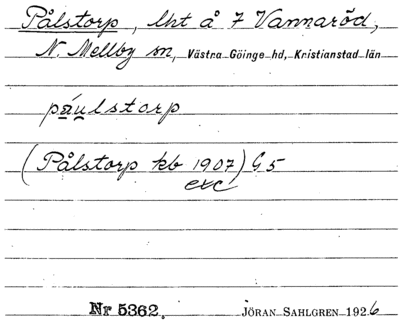 Pålstorp, lht å 7 Vannaröd,
N. Mellby sn, Västra Göinge hd, Kristianstad län
páulstorp
(Pålstorp kb 1907) G 5
exc
Nr 5362. JÖRAN SAHLGREN 1926